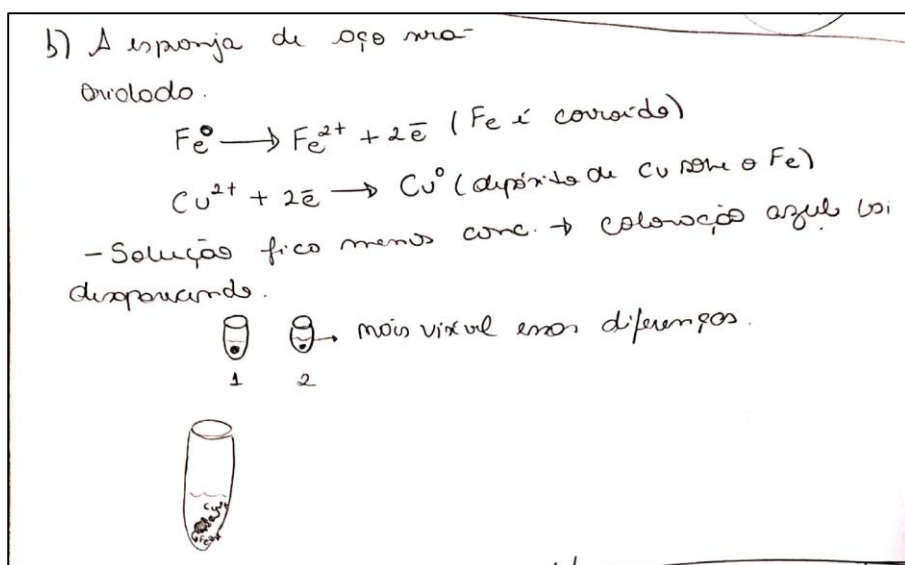 b) A esponja de aço será
oxidado.
Fe⁰ → Fe²⁺ + 2e̅ (Fe é corroído)
Cu²⁺ + 2e̅ → Cu⁰ (depósito de Cu sobre o Fe)
- Solução fica menos conc. → coloração azul vai
desaparecendo.
→ mais vixvel essas diferenças.
1 2